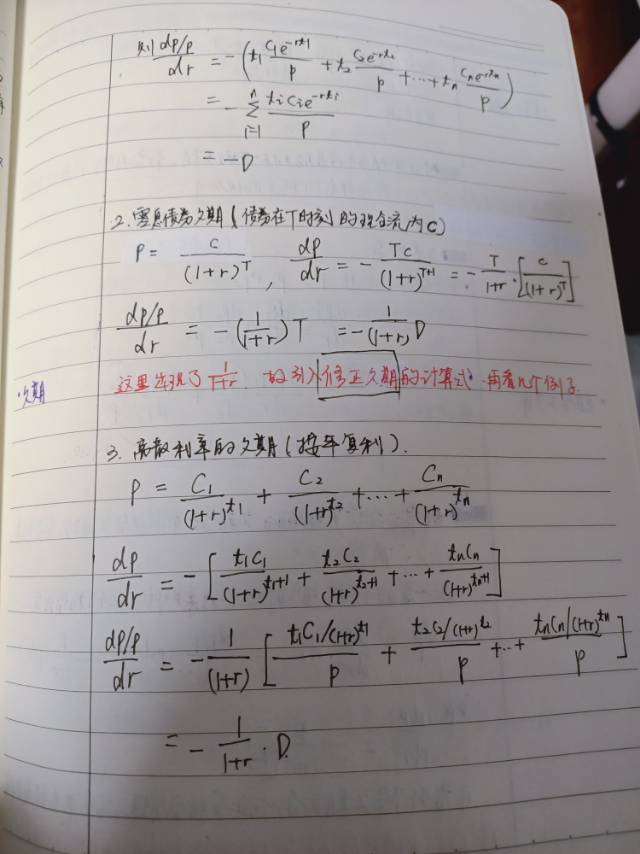 则 dp/p / dr = -(t₁ C₁e^-rt₁/p + t₂ C₂e^-rt₂/p + ... + tₙ Cₙe^-rtₙ/p)
= - Σ_{i=1}^{n} tᵢCᵢe^-rtᵢ / p
= -D
2. 零息债券久期(债券在T时刻的现金流为C)
P = C/(1+r)^T , dp/dr = - TC/(1+r)^(T+1) = - T/(1+r) · [C/(1+r)^T]
dp/p / dr = -(1/(1+r))T = - 1/(1+r) D
久期 这里出现了 1/(1+r), 故引入修正久期的计算式. 再看几个例子
3. 离散利率的久期(按年复利).
P = C₁/(1+r)^t₁ + C₂/(1+r)^t₂ + ... + Cₙ/(1+r)^tₙ
dp/dr = -[t₁C₁/(1+r)^(t₁+1) + t₂C₂/(1+r)^(t₂+1) + ... + tₙCₙ/(1+r)^(tₙ+1)]
dp/p / dr = - 1/(1+r) [t₁C₁/(1+r)^t₁ / p + t₂C₂/(1+r)^t₂ / p + ... + tₙCₙ/(1+r)^tₙ / p]
= - 1/(1+r) · D.